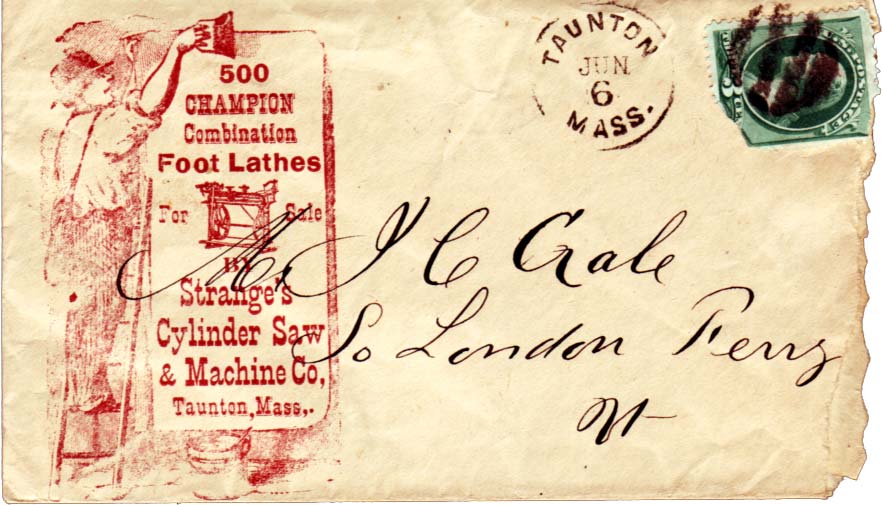 500
CHAMPION
Combination
Foot Lathes
For Sale
BY
Strange's
Cylinder Saw
& Machine Co,
Taunton, Mass,.
TAUNTON
JUN
6
MASS.
U.S. POSTAGE
Mr J C Gale
So London Ferry
Vt